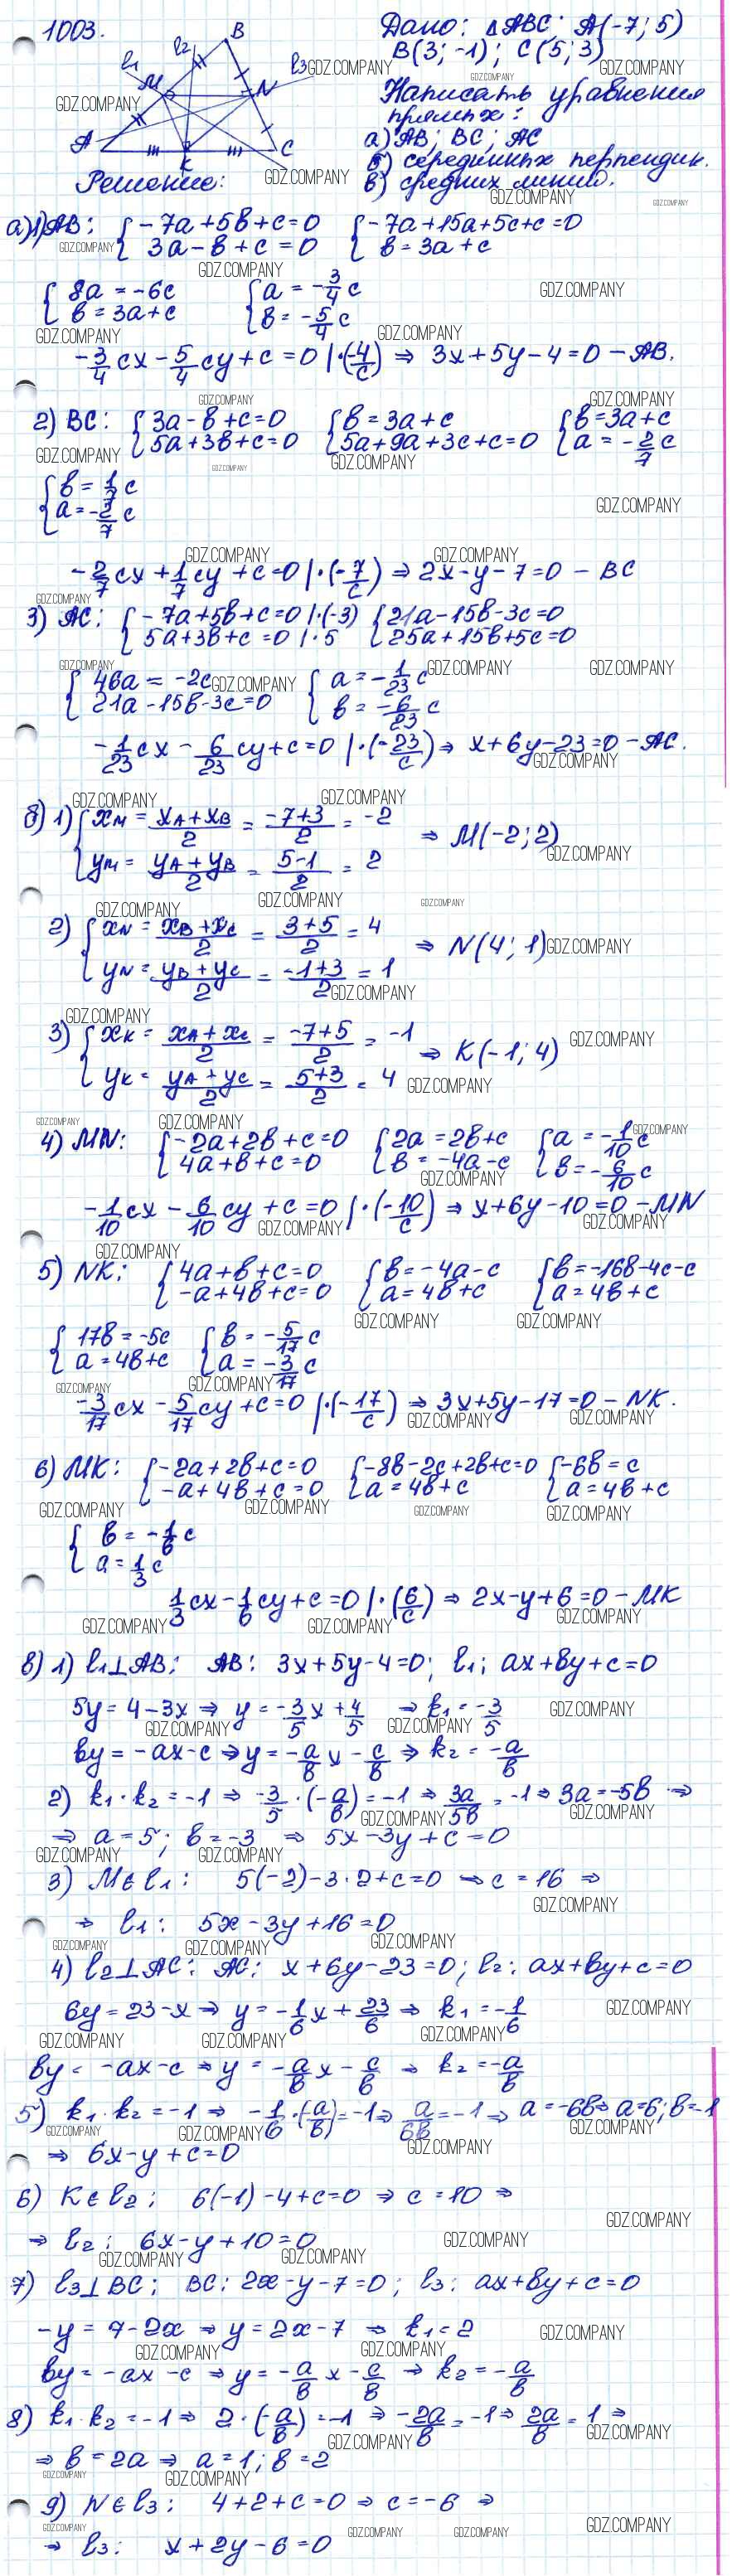 1003.
Дано: △ABC; A(-7; 5)
B(3; -1); C(5; 3)
Написать уравнения
прямых:
а) AB; BC; AC
б) серединных перпендик.
в) средних линий.
B
l1 l2 l3
M N
A K C
Решение:
а) 1) AB: { -7a + 5b + c = 0 { -7a + 15a + 5c + c = 0
3a - b + c = 0 b = 3a + c
{ 8a = -6c { a = -3/4 c
b = 3a + c b = -5/4 c
-3/4 cx - 5/4 cy + c = 0 | · (-4/c) ⇒ 3x + 5y - 4 = 0 - AB.
2) BC: { 3a - b + c = 0 { b = 3a + c { b = 3a + c
5a + 3b + c = 0 5a + 9a + 3c + c = 0 a = -2/7 c
{ b = 1/7 c
a = -2/7 c
-2/7 cx + 1/7 cy + c = 0 | · (-7/c) ⇒ 2x - y - 7 = 0 - BC
3) AC: { -7a + 5b + c = 0 | · (-3) { 21a - 15b - 3c = 0
5a + 3b + c = 0 | · 5 25a + 15b + 5c = 0
{ 46a = -2c { a = -1/23 c
21a - 15b - 3c = 0 b = -6/23 c
-1/23 cx - 6/23 cy + c = 0 | · (-23/c) ⇒ x + 6y - 23 = 0 - AC.
б) 1) { xM = (xA + xB)/2 = (-7 + 3)/2 = -2
yM = (yA + yB)/2 = (5 - 1)/2 = 2 ⇒ M(-2; 2)
2) { xN = (xB + xC)/2 = (3 + 5)/2 = 4
yN = (yB + yC)/2 = (-1 + 3)/2 = 1 ⇒ N(4; 1)
3) { xK = (xA + xC)/2 = (-7 + 5)/2 = -1
yK = (yA + yC)/2 = (5 + 3)/2 = 4 ⇒ K(-1; 4)
4) MN: { -2a + 2b + c = 0 { 2a = 2b + c { a = -1/10 c
4a + b + c = 0 b = -4a - c b = -6/10 c
-1/10 cx - 6/10 cy + c = 0 | · (-10/c) ⇒ x + 6y - 10 = 0 - MN
5) NK: { 4a + b + c = 0 { b = -4a - c { b = -16b - 4c - c
-a + 4b + c = 0 a = 4b + c a = 4b + c
{ 17b = -5c { b = -5/17 c
a = 4b + c a = -3/17 c
-3/17 cx - 5/17 cy + c = 0 | · (-17/c) ⇒ 3x + 5y - 17 = 0 - NK.
6) MK: { -2a + 2b + c = 0 { -8b - 2c + 2b + c = 0 { -6b = c
-a + 4b + c = 0 a = 4b + c a = 4b + c
{ b = -1/6 c
a = 1/3 c
1/3 cx - 1/6 cy + c = 0 | · (6/c) ⇒ 2x - y + 6 = 0 - MK
в) 1) l1 ⊥ AB; AB: 3x + 5y - 4 = 0; l1; ax + by + c = 0
5y = 4 - 3x ⇒ y = -3/5 x + 4/5 ⇒ k1 = -3/5
by = -ax - c ⇒ y = -a/b x - c/b ⇒ k2 = -a/b
2) k1 · k2 = -1 ⇒ -3/5 · (-a/b) = -1 ⇒ 3a/5b = -1 ⇒ 3a = -5b ⇒
⇒ a = 5; b = -3 ⇒ 5x - 3y + c = 0
3) M ∈ l1: 5(-2) - 3 · 2 + c = 0 ⇒ c = 16 ⇒
⇒ l1: 5x - 3y + 16 = 0
4) l2 ⊥ AC: AC: x + 6y - 23 = 0; l2: ax + by + c = 0
6y = 23 - x ⇒ y = -1/6 x + 23/6 ⇒ k1 = -1/6
by = -ax - c ⇒ y = -a/b x - c/b ⇒ k2 = -a/b
5) k1 · k2 = -1 ⇒ -1/6 · (-a/b) = -1 ⇒ a/6b = -1 ⇒ a = -6b ⇒ a = 6; b = -1
⇒ 6x - y + c = 0
6) K ∈ l2; 6(-1) - 4 + c = 0 ⇒ c = 10 ⇒
⇒ l2: 6x - y + 10 = 0
7) l3 ⊥ BC; BC: 2x - y - 7 = 0; l3: ax + by + c = 0
-y = 7 - 2x ⇒ y = 2x - 7 ⇒ k1 = 2
by = -ax - c ⇒ y = -a/b x - c/b ⇒ k2 = -a/b
8) k1 · k2 = -1 ⇒ 2 · (-a/b) = -1 ⇒ -2a/b = -1 ⇒ 2a/b = 1 ⇒
⇒ b = 2a ⇒ a = 1; b = 2
9) N ∈ l3: 4 + 2 + c = 0 ⇒ c = -6 ⇒
⇒ l3: x + 2y - 6 = 0
GDZ.COMPANY